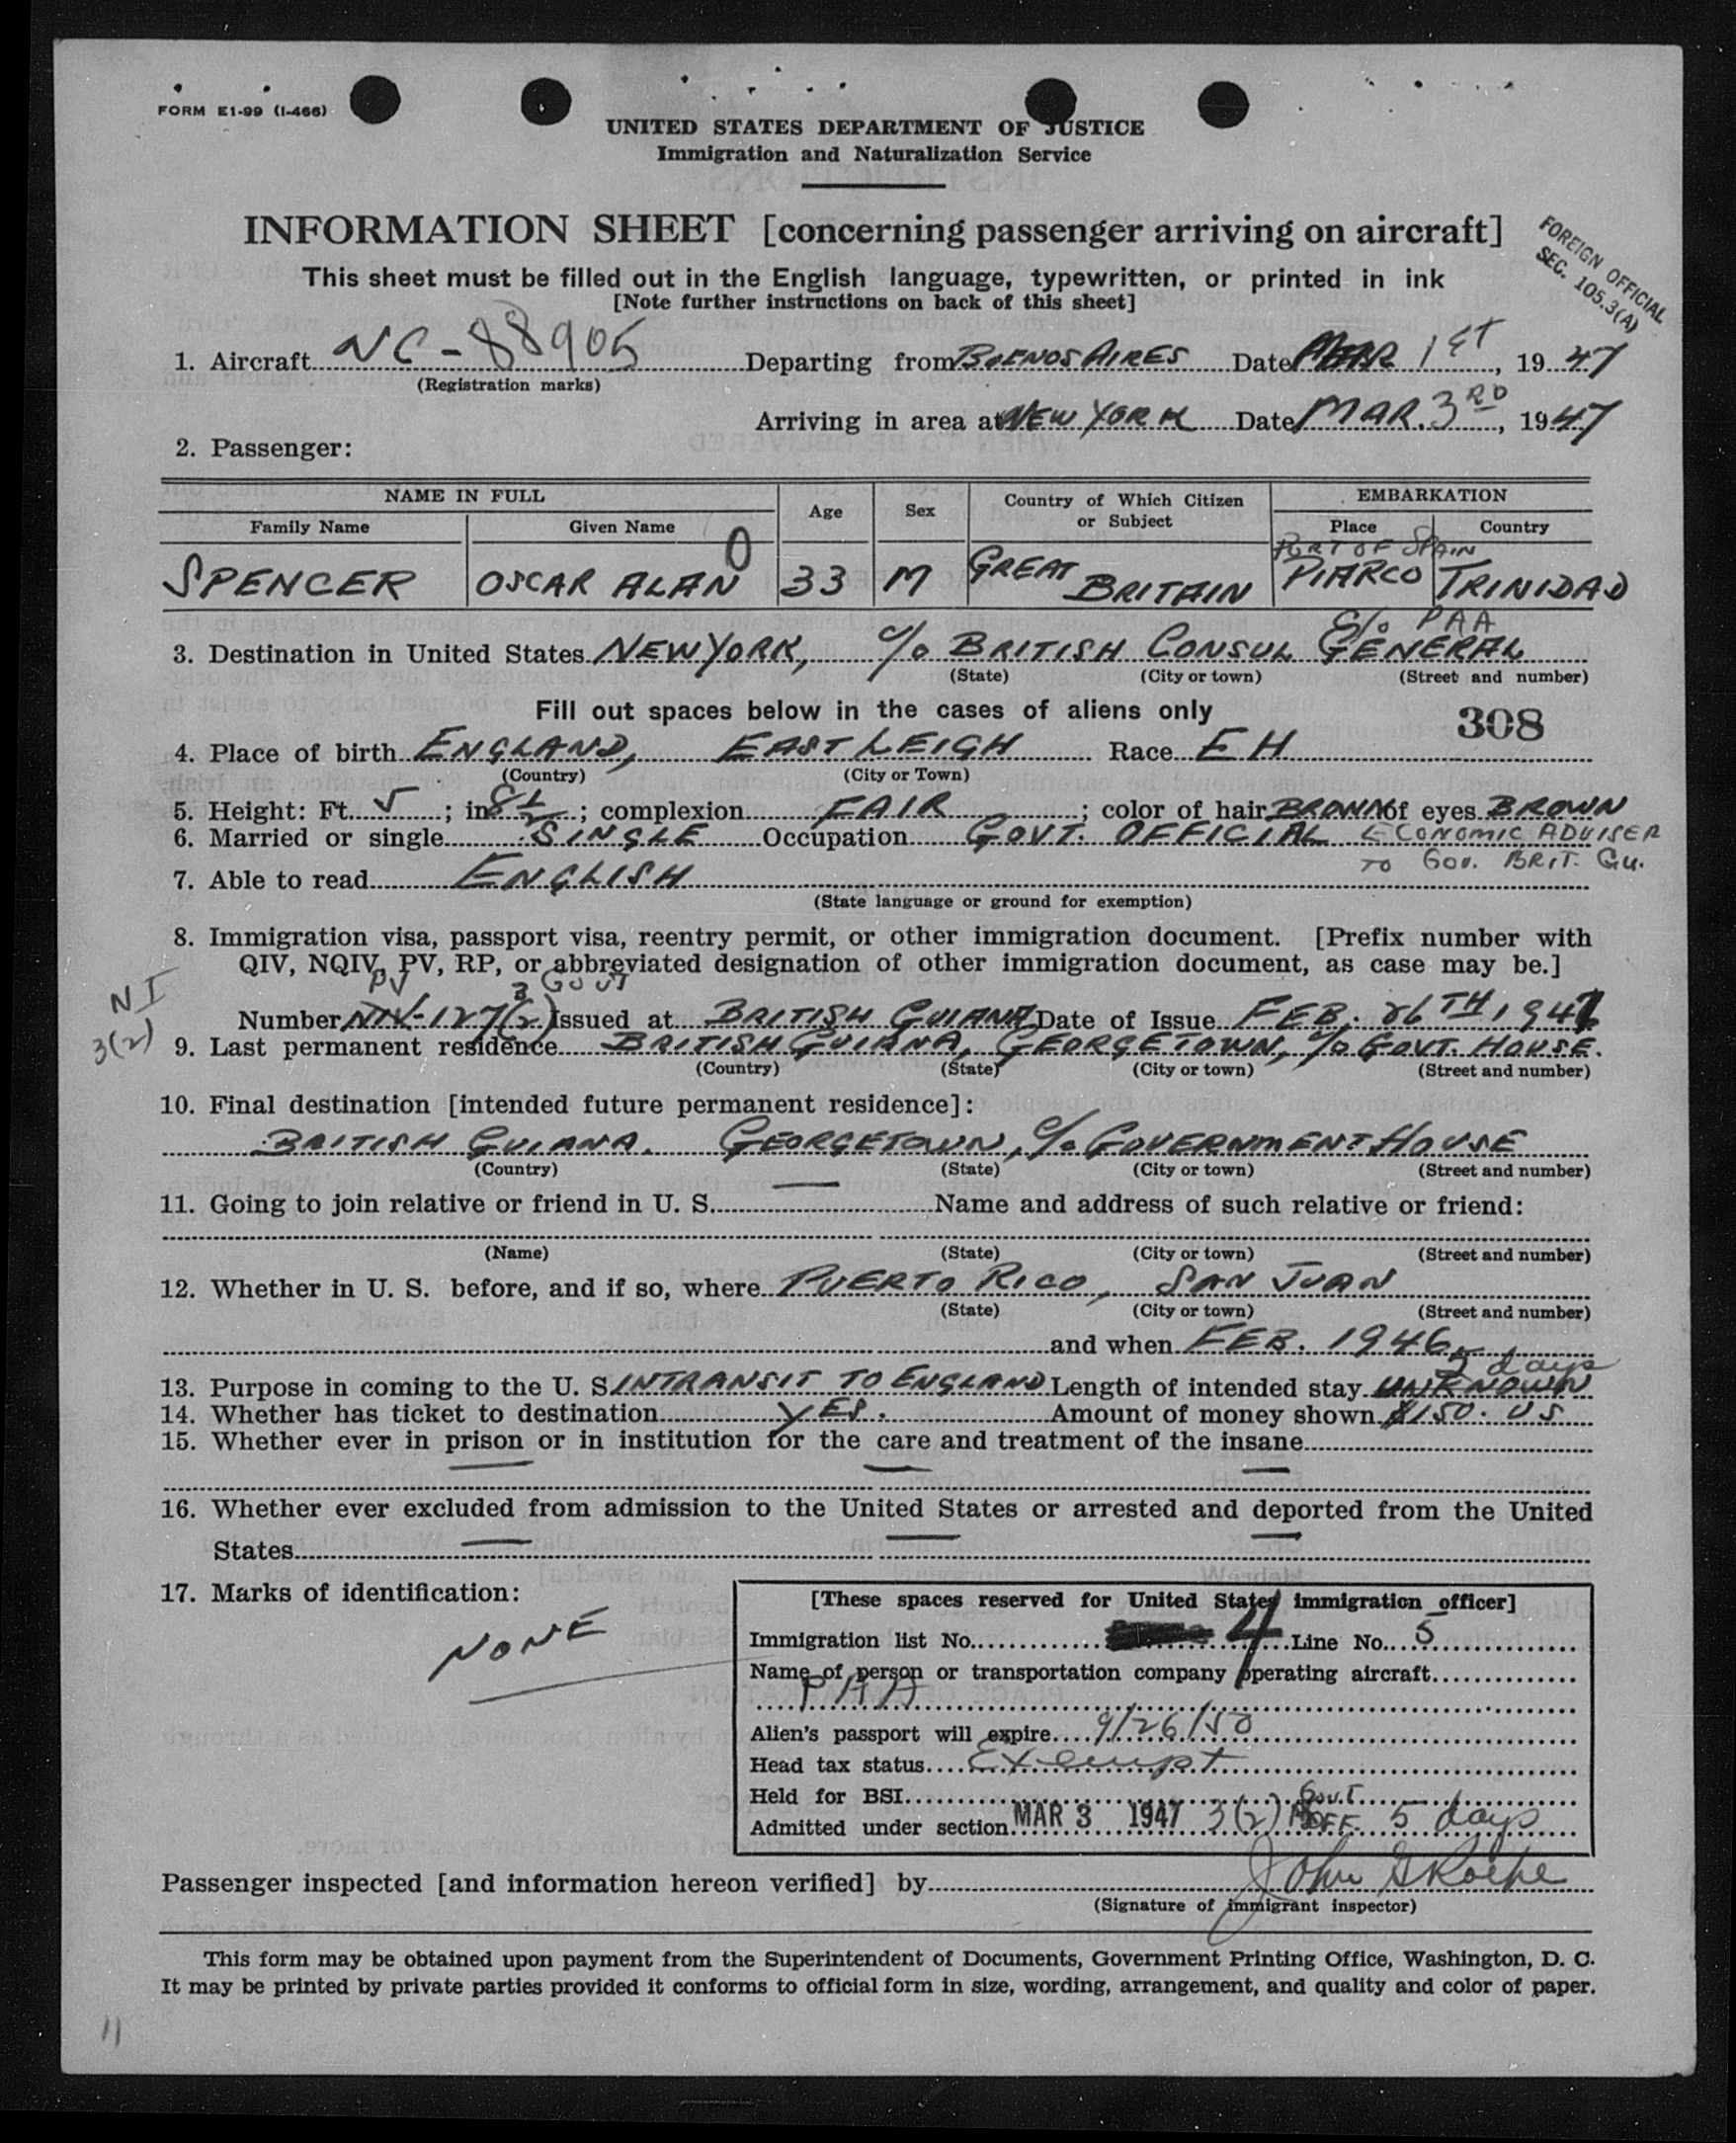 FORM E1-99 (I-466)
UNITED STATES DEPARTMENT OF JUSTICE
Immigration and Naturalization Service
INFORMATION SHEET [concerning passenger arriving on aircraft]
FOREIGN OFFICIAL
SEC. 105.3(A)
This sheet must be filled out in the English language, typewritten, or printed in ink
[Note further instructions on back of this sheet]
1. Aircraft NC-88905 Departing from BUENOS AIRES Date MAR 1ST, 1947
(Registration marks)
Arriving in area at NEW YORK Date MAR. 3RD, 1947
2. Passenger:
NAME IN FULL Age Sex Country of Which Citizen or Subject EMBARKATION
Family Name Given Name Place Country
PORT OF SPAIN
SPENCER OSCAR ALAN O 33 M GREAT BRITAIN PIARCO TRINIDAD
C/o PAA
3. Destination in United States NEW YORK, c/o BRITISH CONSUL GENERAL
(State) (City or town) (Street and number)
Fill out spaces below in the cases of aliens only 308
4. Place of birth ENGLAND, EASTLEIGH Race EH
(Country) (City or Town)
5. Height: Ft. 5; in 8½; complexion FAIR; color of hair BROWN of eyes BROWN
6. Married or single SINGLE Occupation GOVT. OFFICIAL ECONOMIC ADVISER
TO GOV. BRIT. GU.
7. Able to read ENGLISH
(State language or ground for exemption)
8. Immigration visa, passport visa, reentry permit, or other immigration document. [Prefix number with
QIV, NQIV, PV, RP, or abbreviated designation of other immigration document, as case may be.]
NI
3(2)
PV 3 GOVT
Number NIV-127(2) Issued at BRITISH GUIANA Date of Issue FEB. 26TH 1947
9. Last permanent residence BRITISH GUIANA, GEORGETOWN, c/o GOVT. HOUSE.
(Country) (State) (City or town) (Street and number)
10. Final destination [intended future permanent residence]:
BRITISH GUIANA. GEORGETOWN, c/o GOVERNMENT HOUSE
(Country) (State) (City or town) (Street and number)
11. Going to join relative or friend in U. S. — Name and address of such relative or friend:
(Name) (State) (City or town) (Street and number)
12. Whether in U. S. before, and if so, where PUERTO RICO, SAN JUAN
(State) (City or town) (Street and number)
and when FEB. 1946
5 days
13. Purpose in coming to the U. S. INTRANSIT TO ENGLAND Length of intended stay UNKNOWN
14. Whether has ticket to destination YES. Amount of money shown $150. US
15. Whether ever in prison or in institution for the care and treatment of the insane
— — —
16. Whether ever excluded from admission to the United States or arrested and deported from the United
States — — —
17. Marks of identification:
NONE
[These spaces reserved for United States immigration officer]
Immigration list No. 4 Line No. 5
Name of person or transportation company operating aircraft
PAA
Alien's passport will expire 9/26/50
Head tax status Exempt
Held for BSI
Admitted under section MAR 3 1947 3(2) GOVT OFF. 5 days
Passenger inspected [and information hereon verified] by John G Roche
(Signature of immigrant inspector)
This form may be obtained upon payment from the Superintendent of Documents, Government Printing Office, Washington, D. C.
It may be printed by private parties provided it conforms to official form in size, wording, arrangement, and quality and color of paper.
11